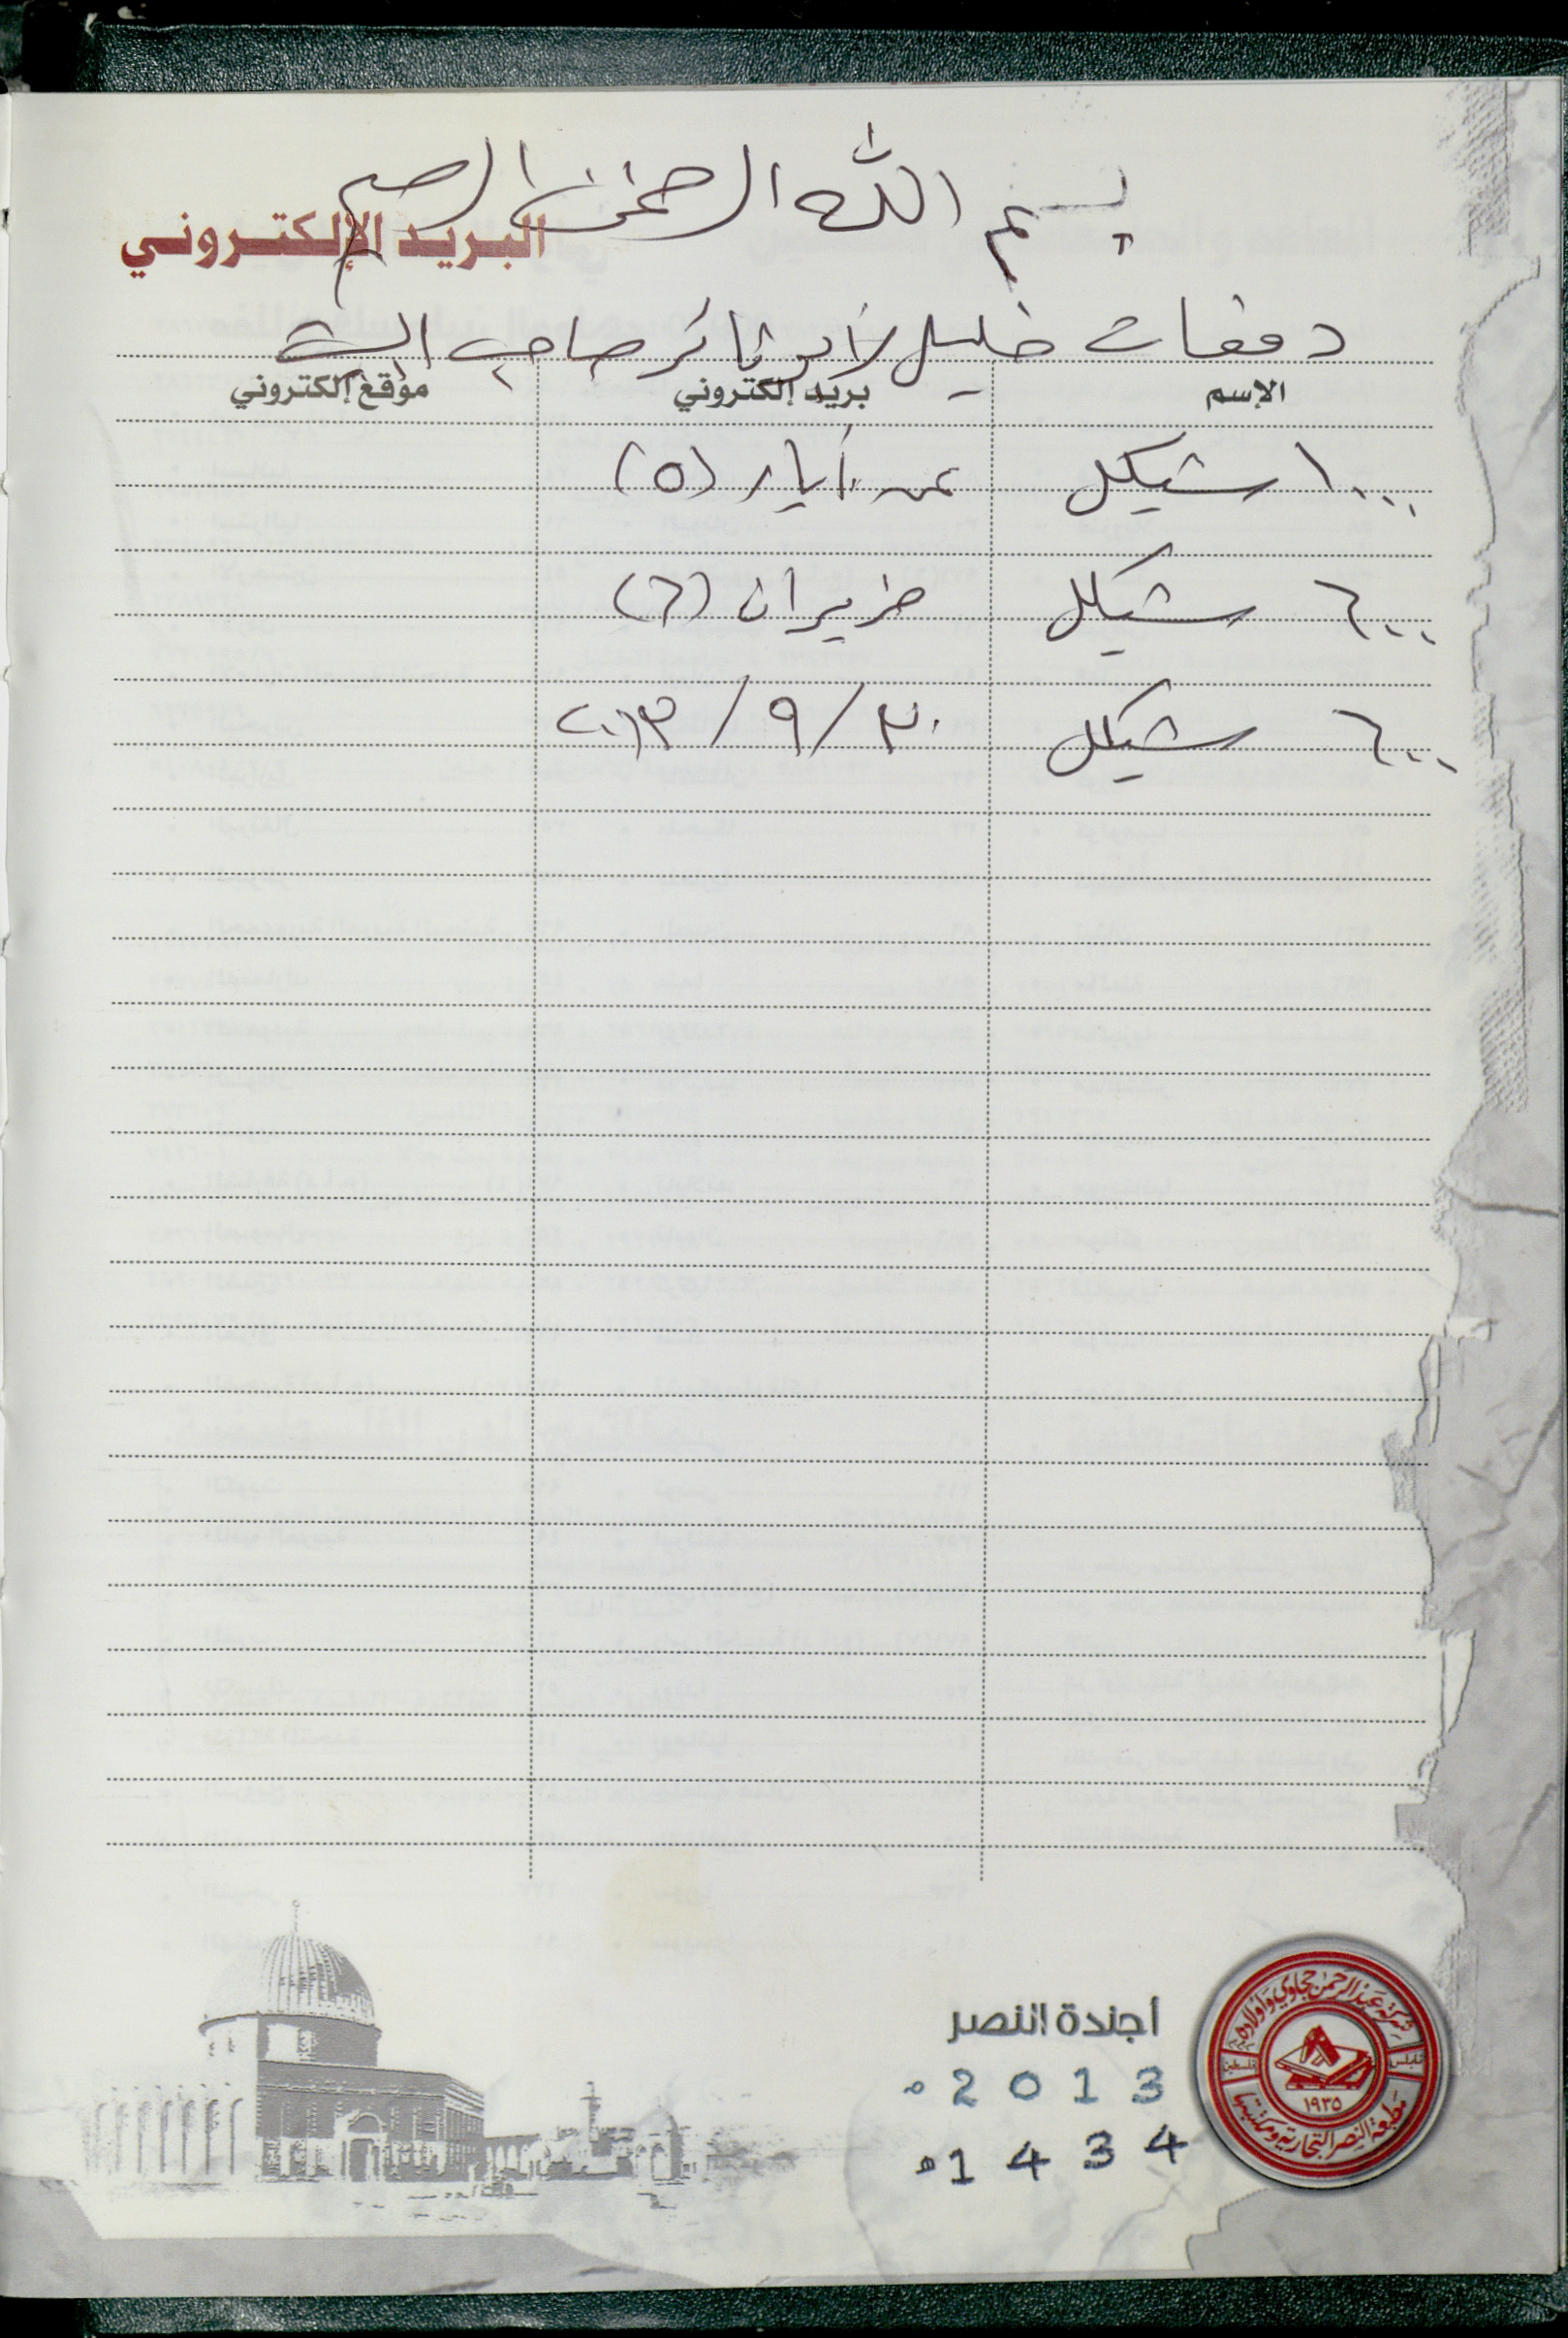 بسم الله الرحمن الرحيم
البريد الإلكتروني
دفعات خليل لأبو ثائر صاحب البيت
الإسم بريد إلكتروني موقع إلكتروني
١٠٠٠ شيكل عن أيار (٥)
٦٠٠ شيكل حزيران (٦)
٦٠٠ شيكل ٣٠/٩/٢٠١٣
أجندة النصر
2013م
1434هـ
شركة عبد الرحمن حجاوي وأولاده
نابلس فلسطين
١٩٣٥
مطبعة النصر التجارية ومكتبتها